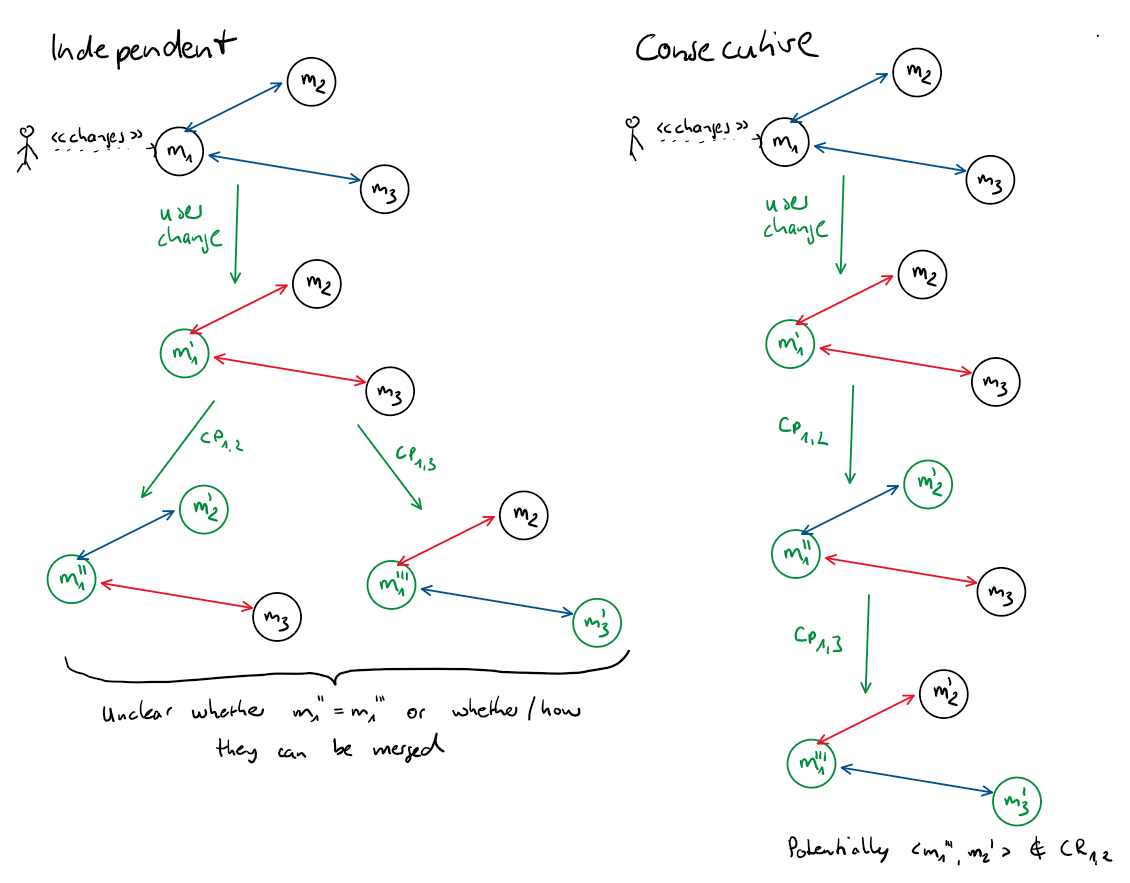 Independent
m₂
<<changes>>
m₁
m₃
user
change
m₂
m₁'
m₃
CP₁,₂
CP₁,₃
m₂'
m₁''
m₃
m₂
m₁'''
m₃'
Unclear whether m₁'' = m₁''' or whether/how
they can be merged
Consecutive
m₂
<<changes>>
m₁
m₃
user
change
m₂
m₁'
m₃
CP₁,₂
m₂'
m₁''
m₃
CP₁,₃
m₂'
m₁'''
m₃'
Potentially <m₁''', m₂'> ∉ CR₁,₂